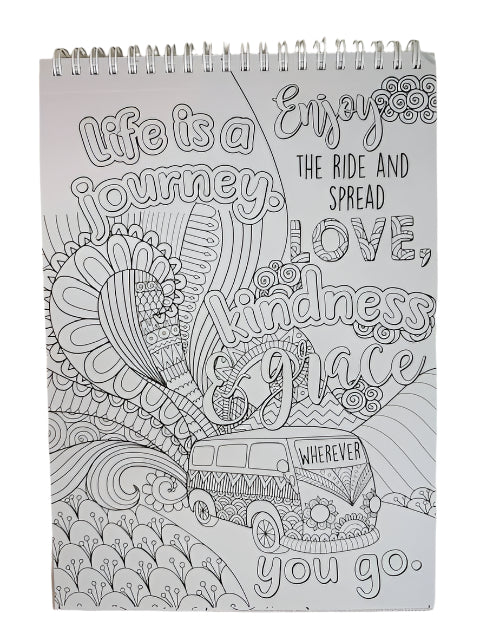 Life is a
journey.
Enjoy
THE RIDE AND
SPREAD
LOVE,
kindness
& grace
WHEREVER
you go.